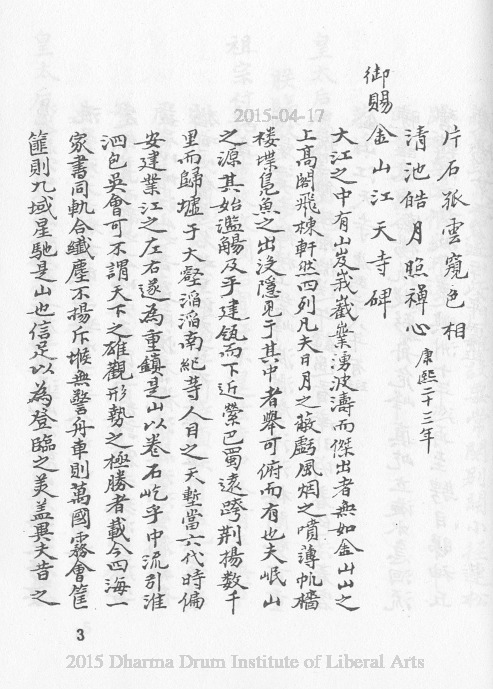 片石孤雲窺色相
清池皓月照禪心 康熙二十三年
御賜金山江天寺碑
大江之中有山岌峩巀嶪湧波濤而傑出者無如金山山之
上高閣飛棟軒然四列凡夫日月之蔽虧風烟之噴薄帆檣
楼堞鼋魚之出没隱見于其中者舉可俯而有也夫岷山
之源其始濫觴及乎建瓴而下近縈巴蜀遠跨荆楊数千
里而歸墟于大壑滔滔南紀等人目之天塹當六代時偏
安建業江之左右遂為重鎮是山以卷石屹乎中流引淮
泗包吳會可不謂天下之雄觀形勢之極勝者載今四海一
家書同軌合纖塵不揚斥堠無警舟車則萬國霧會筐
篚則九域星馳是山也信足以為登臨之美盖異夫昔之
3
2015-04-17
2015 Dharma Drum Institute of Liberal Arts